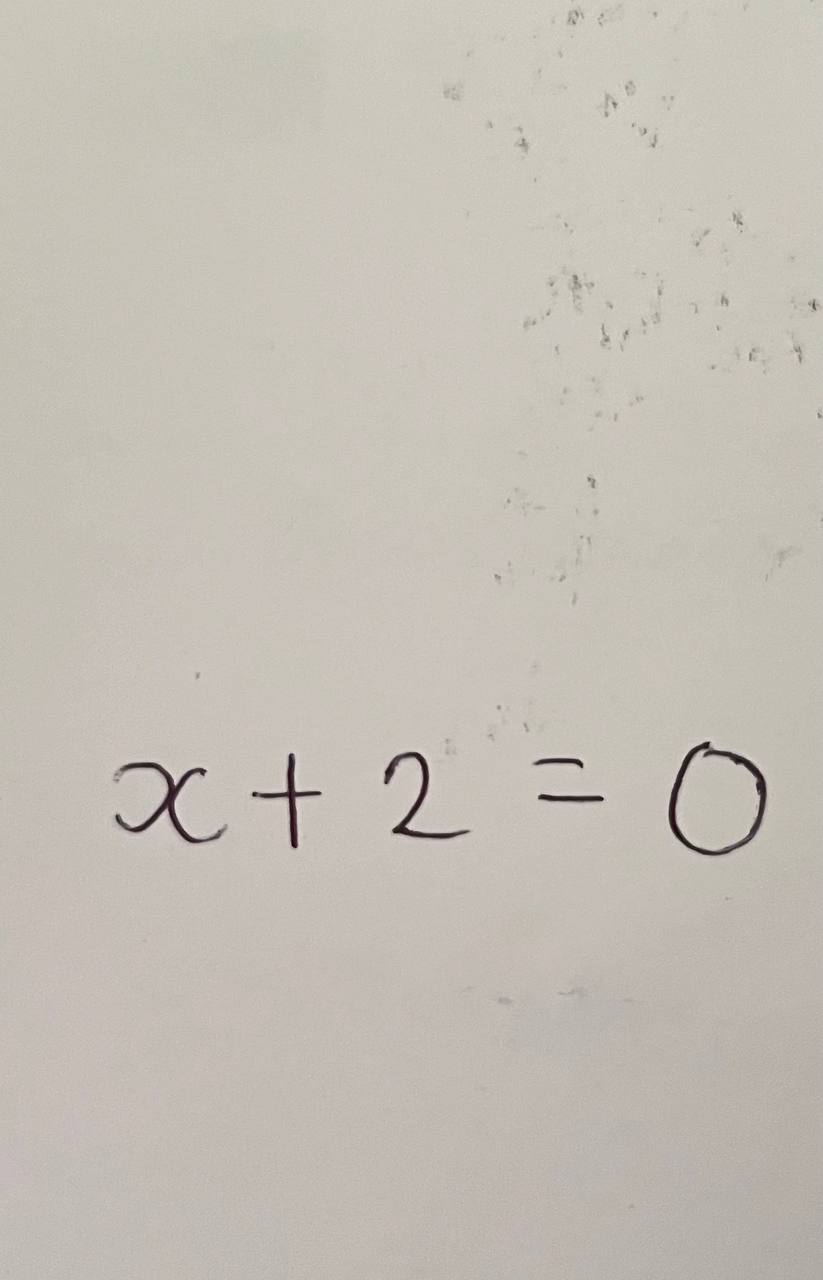 x + 2 = 0